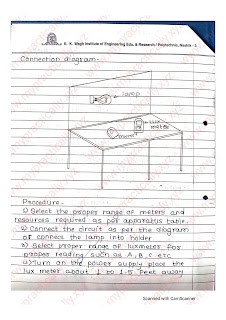 K. K. Wagh Institute of Engineering Edu. & Research/ Polytechnic, Nashik - 3.
Connection diagram-
lamp
LUX
meter
Procedure-
1) Select the proper range of meters and
resources required as per apparatus table.
2) Connect the circuit as per the diagram
or connect the lamp into holder
3) Select proper range of luxmeter For
proper reading such as A, B, C etc
4) Turn on the power supply place the
lux meter about 1 to 1.5 feet away
Scanned with CamScanner